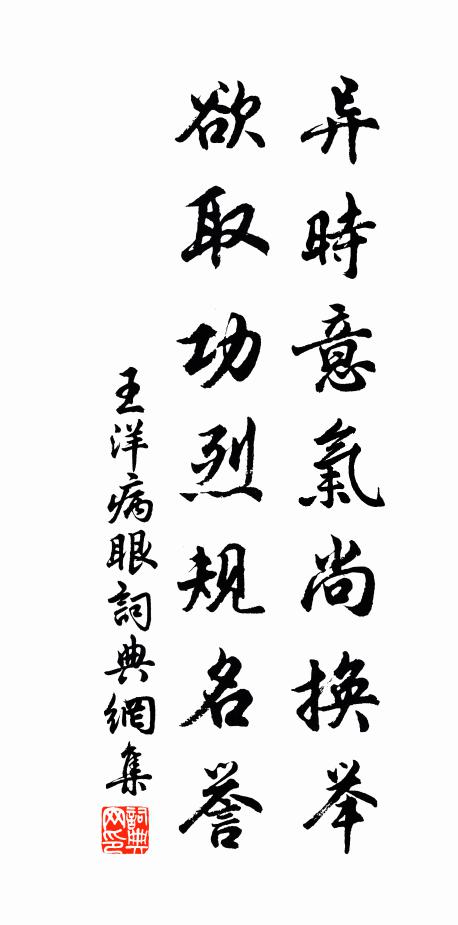 异時意氣尚換举
欲取功烈規名誉
王洋病眼詞典網集
詞典网印